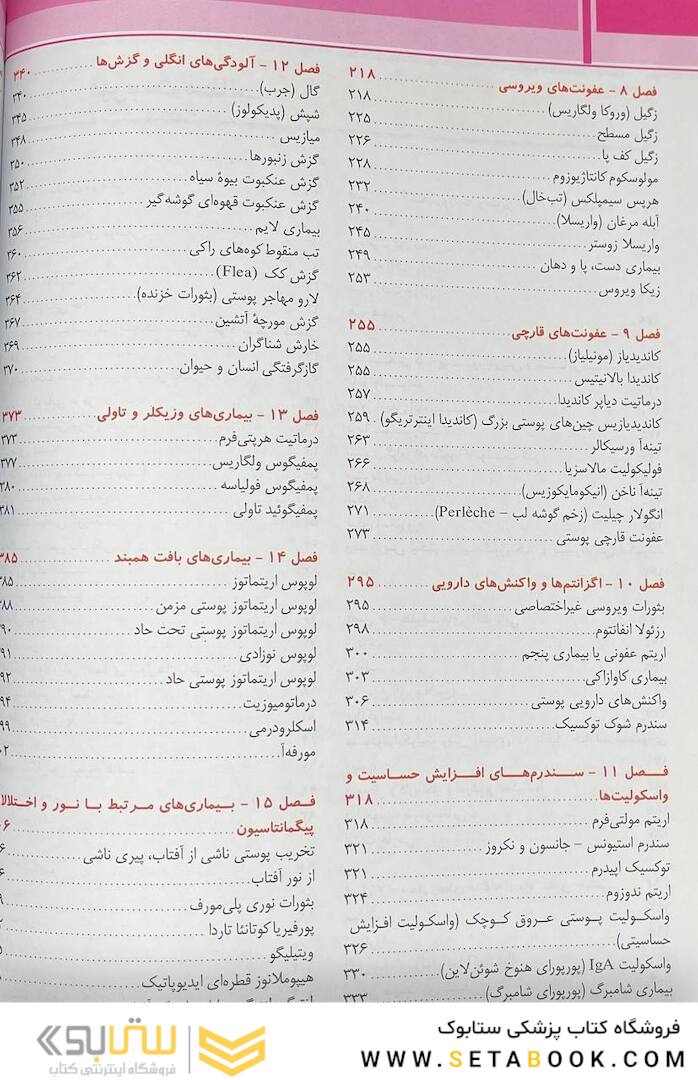 فصل ۸ - عفونت‌های ویروسی ۲۱۸
زگیل (وروکا ولگاریس) ۲۱۸
زگیل مسطح ۲۲۵
زگیل کف پا ۲۲۶
مولوسکوم کانتاژیوزوم ۲۲۸
هرپس سیمپلکس (تب‌خال) ۲۳۲
آبله مرغان (واریسلا) ۲۴۰
واریسلا زوستر ۲۴۵
بیماری دست، پا و دهان ۲۴۹
زیکا ویروس ۲۵۳
فصل ۹ - عفونت‌های قارچی ۲۵۵
کاندیدیاز (مونیلیاز) ۲۵۵
کاندیدا بالانیتیس ۲۵۵
درماتیت دیاپر کاندیدا ۲۵۷
کاندیدیازیس چین‌های پوستی بزرگ (کاندیدا اینترتریگو) ۲۵۹
تینه‌آ ورسیکالر ۲۶۳
فولیکولیت مالاسزیا ۲۶۶
تینه‌آ ناخن (انیکومایکوزیس) ۲۶۸
انگولار چیلیت (زخم گوشه لب - Perlèche) ۲۷۱
عفونت قارچی پوستی ۲۷۳
فصل ۱۰ - اگزانتم‌ها و واکنش‌های دارویی ۲۹۵
بثورات ویروسی غیراختصاصی ۲۹۵
رزئولا انفانتوم ۲۹۸
اریتم عفونی یا بیماری پنجم ۳۰۰
بیماری کاوازاکی ۳۰۳
واکنش‌های دارویی پوستی ۳۰۶
سندرم شوک توکسیک ۳۱۴
فصل ۱۱ - سندرم‌های افزایش حساسیت و
واسکولیت‌ها ۳۱۸
اریتم مولتی‌فرم ۳۱۸
سندرم استیونس - جانسون و نکروز ۳۲۱
توکسیک اپیدرم ۳۲۱
اریتم ندوزوم ۳۲۴
واسکولیت پوستی عروق کوچک (واسکولیت افزایش
حساسیتی) ۳۲۶
واسکولیت IgA (پورپورای هنوخ شوئن‌لاین) ۳۳۰
بیماری شامبرگ (پورپورای شامبرگ) ۳۳۳
فصل ۱۲ - آلودگی‌های انگلی و گزش‌ها ۳۴۰
گال (جرب) ۳۴۰
شپش (پدیکولوز) ۳۴۵
میازیس ۳۴۸
گزش زنبورها ۳۵۰
گزش عنکبوت بیوهٔ سیاه ۳۵۲
گزش عنکبوت قهوه‌ای گوشه‌گیر ۳۵۵
بیماری لایم ۳۵۶
تب منقوط کوه‌های راکی ۳۶۰
گزش کک (Flea) ۳۶۲
لارو مهاجر پوستی (بثورات خزنده) ۳۶۴
گزش مورچهٔ آتشین ۳۶۷
خارش شناگران ۳۶۹
گازگرفتگی انسان و حیوان ۳۷۰
فصل ۱۳ - بیماری‌های وزیکلر و تاولی ۳۷۳
درماتیت هرپتی‌فرم ۳۷۳
پمفیگوس ولگاریس ۳۷۷
پمفیگوس فولیاسه ۳۸۰
پمفیگوئید تاولی ۳۸۱
فصل ۱۴ - بیماری‌های بافت همبند ۳۸۵
لوپوس اریتماتوز ۳۸۵
لوپوس اریتماتوز پوستی مزمن ۸۸
لوپوس اریتماتوز پوستی تحت حاد ۹۰
لوپوس نوزادی ۹۱
لوپوس اریتماتوز پوستی حاد ۹۲
درماتومیوزیت ۹۴
اسکلرودرمی ۹۹
مورفه‌آ ۰۲
فصل ۱۵ - بیماری‌های مرتبط با نور و اختلالا
پیگمانتاسیون ۰۶
تخریب پوستی ناشی از آفتاب، پیری ناشی ۶
از نور آفتاب ۶
بثورات نوری پلی‌مورف ۹
پورفیریا کوتانئا تاردا
ویتیلیگو
هیپوملانوز قطره‌ای ایدیوپاتیک
ستابوک
فروشگاه اینترنتی کتاب
فروشگاه کتاب پزشکی ستابوک
WWW.SETABOOK.COM